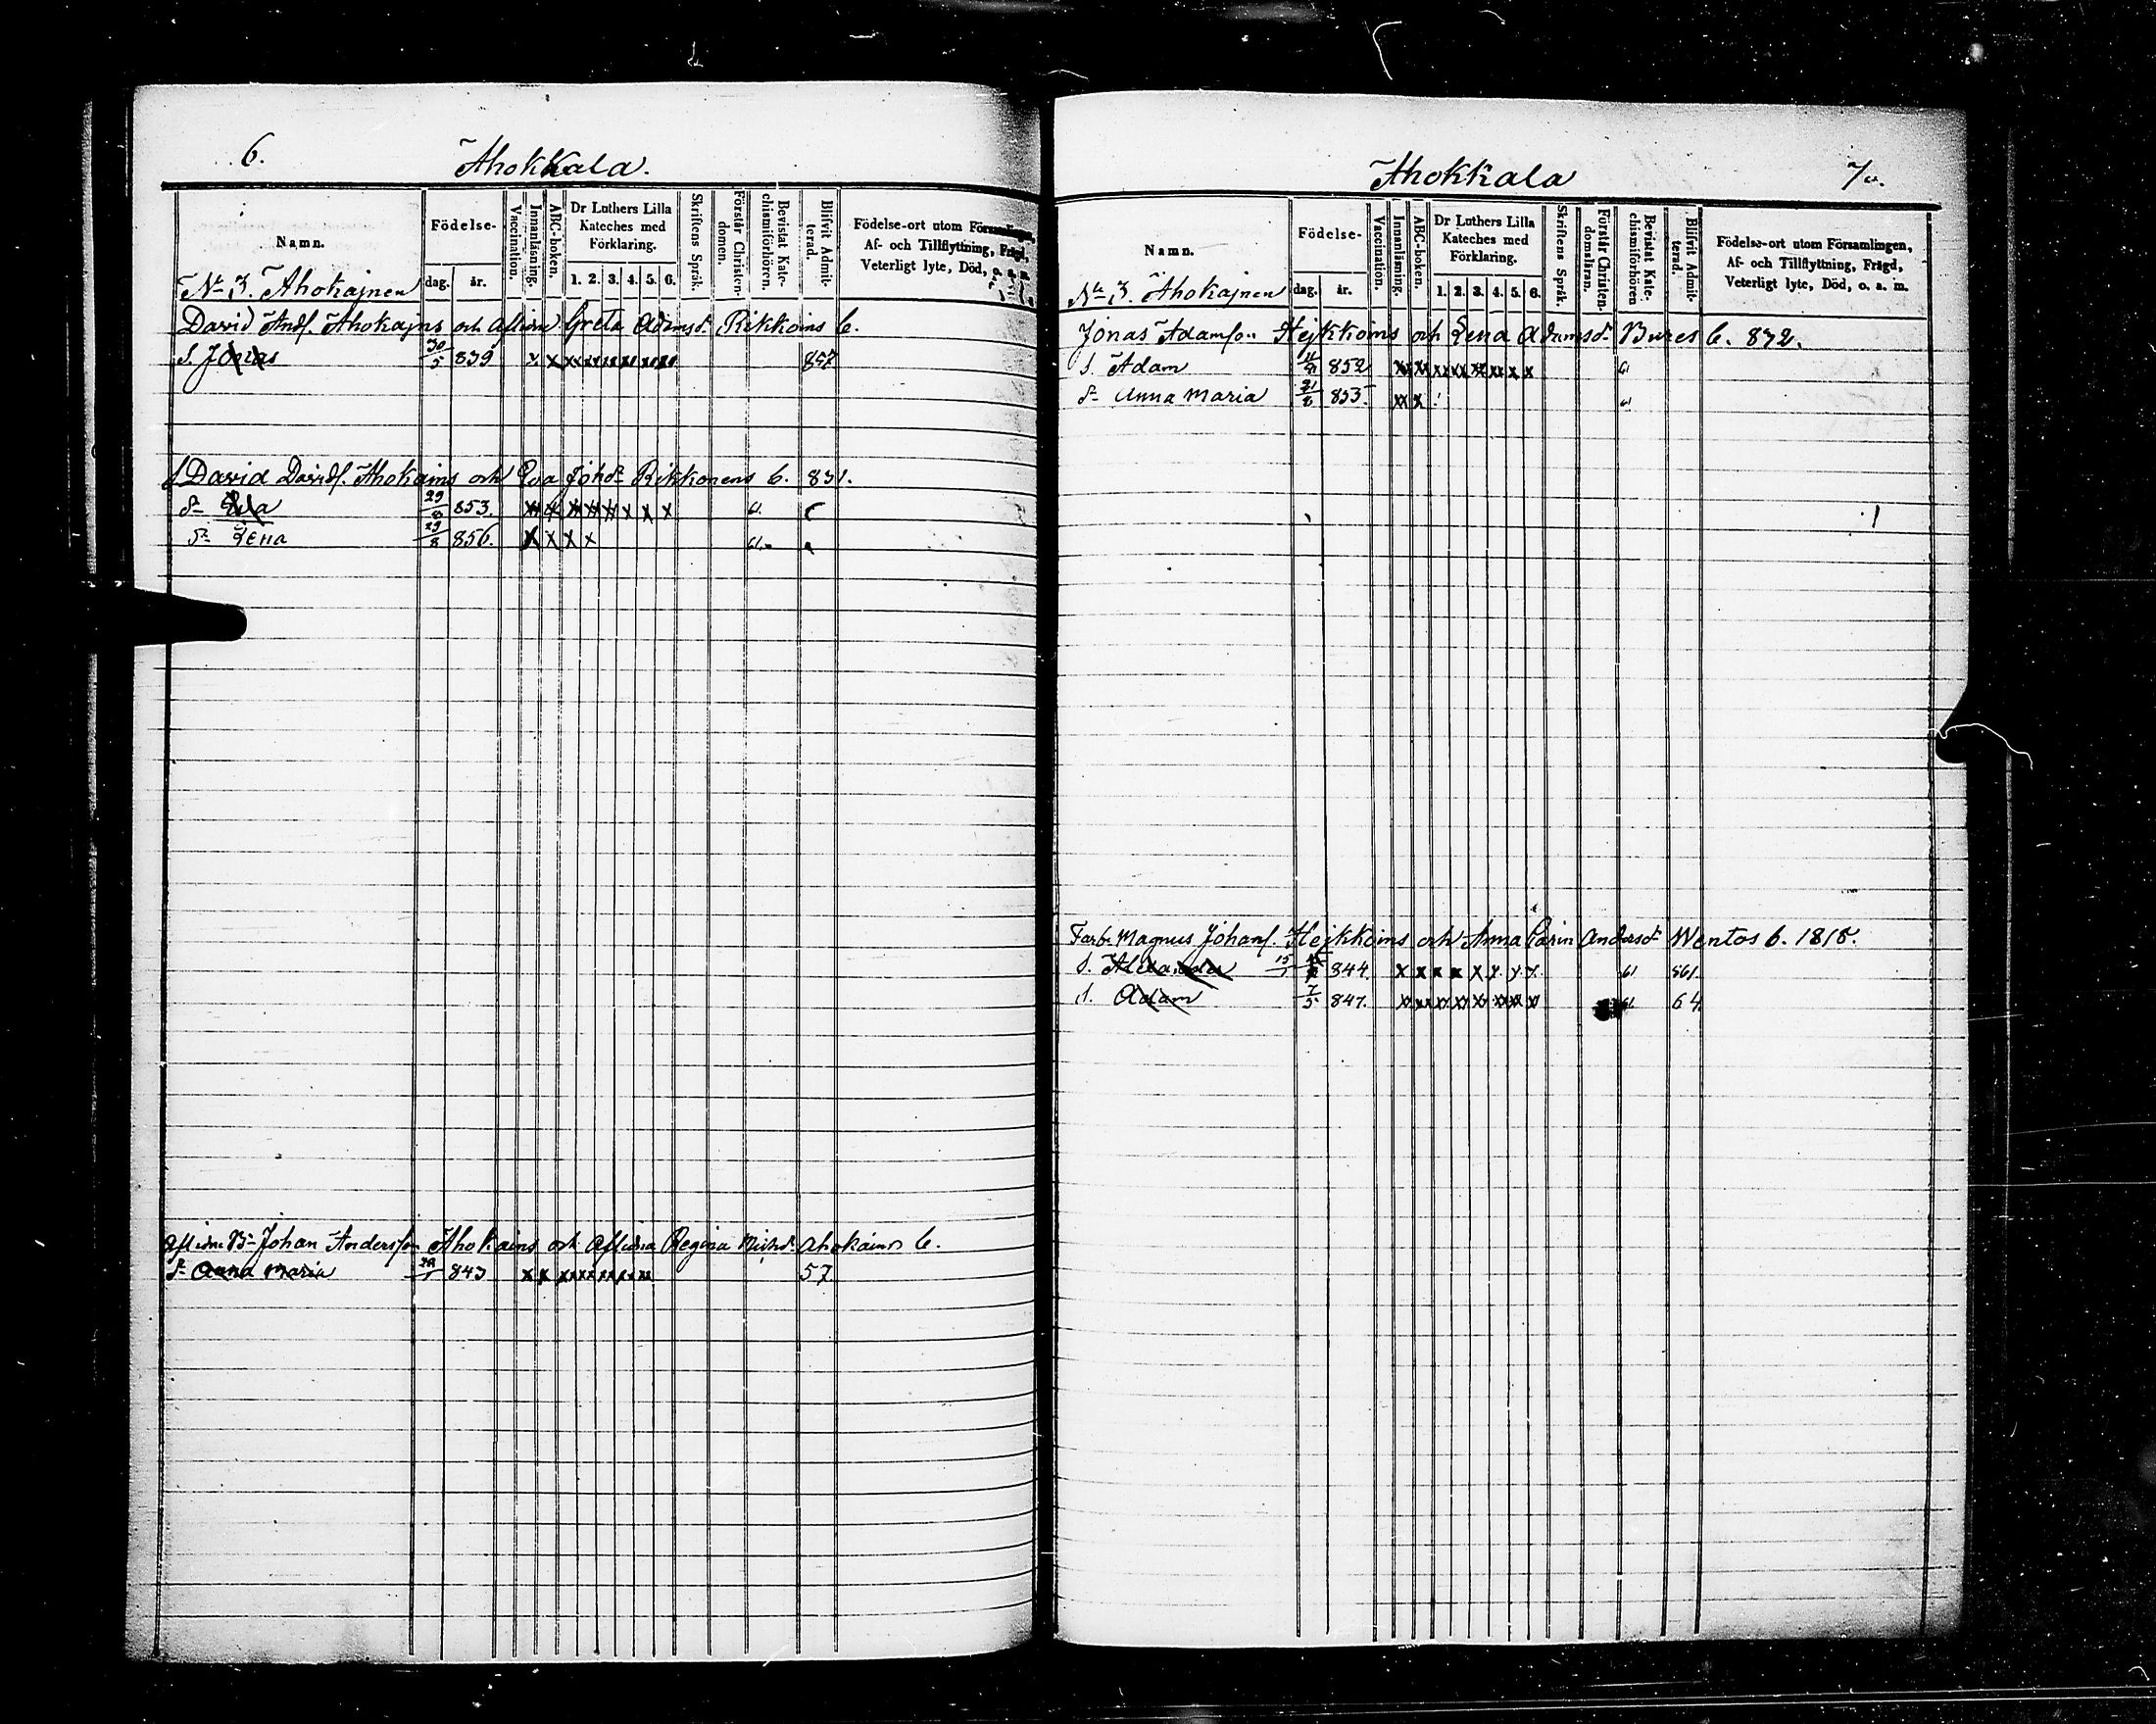 6.
Ahokkala.
Namn.
Födelse-
dag. år.
Vaccination.
Innanläsning.
ABC-boken.
Dr Luthers Lilla
Kateches med
Förklaring.
1. 2. 3. 4. 5. 6.
Skriftens Språk.
Förstår Christen-
domen.
Bevistat Kate-
chismiförhören.
Blifvit Admit-
terad.
Födelse-ort utom Församlingen,
Af- och Tillflyttning, Frägd,
Veterligt lyte, Död, o. a. m.
No 3. Ahokajnen
David Andſ. Ahokajns och Aflidne Greta Adamsdr Rikkoins b.
S. Jonas 30/5 839 x x xx xx xx xx xx xx 857
David Davidſ. Ahokains och Eva Johdr Rikkonens b. 831.
Dr Eva 29/8 853. xx x xx xx xx x x x 61.
Dr Lena 29/8 856. x x x x 61.
Aflidne Johan Andersſon Ahokains och Aflidna Regina Ahokains b.
Dr Anna Maria 843 x x xx xx xx xx xx 57
Ahokkala
7.
Namn.
Födelse-
dag. år.
Vaccination.
Innanläsning.
ABC-boken.
Dr Luthers Lilla
Kateches med
Förklaring.
1. 2. 3. 4. 5. 6.
Skriftens Språk.
Förstår Christen-
domsläran.
Bevistat Kate-
chismiförhören
Blifvit Admit-
terad.
Födelse-ort utom Församlingen,
Af- och Tillflyttning, Frägd,
Veterligt lyte, Död, o. a. m.
No 3. Ahokajnen
Jonas Adamſon Hejkkoins och Lena Adamsdr Bures b. 832.
S. Adam 852 xx xx xx xx xx xx x x 61
Dr Anna Maria 21/8 855. xx x 61
Farb. Magnus Johanſ. Hejkkoins och Anna Carin Andersdr Wentos b. 1818.
S. Alexander 844. x x x x x x x x 61 861.
S. Adam 7/5 847. xx xx xx xx xx xx xx xx 61 64